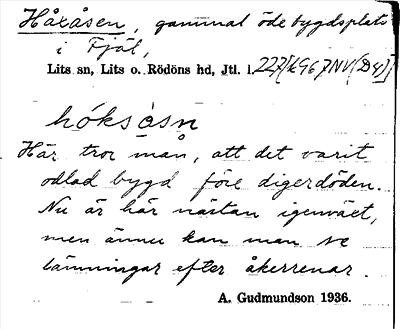 Håxåsen, gammal ödebygdsplats
i Fjäl,
Lits sn, Lits o. Rödöns hd, Jtl. l.
hóksåsn
Här tror man, att det varit
odlad bygd före digerdöden.
Nu är här nästan igenväxt,
men ännu kan man se
lämningar efter åkerrenar.
A. Gudmundson 1936.